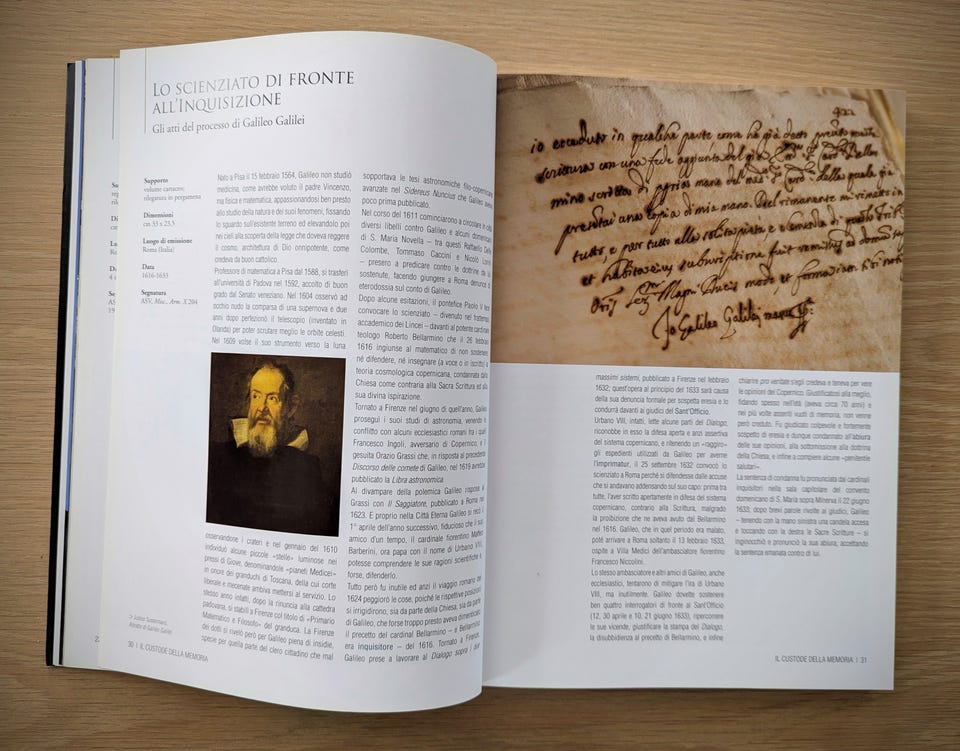 LO SCIENZIATO DI FRONTE
ALL'INQUISIZIONE
Gli atti del processo di Galileo Galilei
Supporto
volume cartaceo;
rilegatura in pergamena
Dimensioni
cm 33 x 23,5
Luogo di emissione
Roma (Italia)
Data
1616-1633
Segnatura
ASV, Misc., Arm. X 204
Nato a Pisa il 15 febbraio 1564, Galileo non studiò
medicina, come avrebbe voluto il padre Vincenzo,
ma fisica e matematica, appassionandosi ben presto
allo studio della natura e dei suoi fenomeni, fissando
lo sguardo sull'esistente terreno ed elevandolo poi
nei cieli alla scoperta della legge che doveva reggere
il cosmo, architettura di Dio onnipotente, come
credeva da buon cattolico.
Professore di matematica a Pisa dal 1588, si trasferì
all'università di Padova nel 1592, accolto di buon
grado dal Senato veneziano. Nel 1604 osservò ad
occhio nudo la comparsa di una supernova e due
anni dopo perfezionò il telescopio (inventato in
Olanda) per poter scrutare meglio le orbite celesti.
Nel 1609 volse il suo strumento verso la luna
osservandone i crateri e nel gennaio del 1610
individuò alcune piccole «stelle» luminose nei
pressi di Giove, denominandole «pianeti Medicei»
in onore dei granduchi di Toscana, della cui corte
liberale e mecenate ambiva mettersi al servizio. Lo
stesso anno infatti, dopo la rinuncia alla cattedra
padovana, si stabilì a Firenze col titolo di «Primario
Matematico e Filosofo» del granduca. La Firenze
dei dotti si rivelò però per Galileo piena di insidie,
specie per quella parte del clero cittadino che mal
> Justus Sustermans,
Ritratto di Galileo Galilei
30 | IL CUSTODE DELLA MEMORIA
sopportava le tesi astronomiche filo-copernicane
avanzate nel Sidereus Nuncius che Galileo aveva
poco prima pubblicato.
Nel corso del 1611 cominciarono a circolare in città
diversi libelli contro Galileo e alcuni domenicani
di S. Maria Novella – tra questi Raffaello Delle
Colombe, Tommaso Caccini e Nicolò Lorini
– presero a predicare contro le dottrine da lui
sostenute, facendo giungere a Roma denunce di
eterodossia sul conto di Galileo.
Dopo alcune esitazioni, il pontefice Paolo V fece
convocare lo scienziato – divenuto nel frattempo
accademico dei Lincei – davanti al potente cardinale
teologo Roberto Bellarmino che il 26 febbraio
1616 ingiunse al matematico di non sostenere,
né difendere, né insegnare (a voce o in iscritto) la
teoria cosmologica copernicana, condannata dalla
Chiesa come contraria alla Sacra Scrittura ed alla
sua divina ispirazione.
Tornato a Firenze nel giugno di quell'anno, Galileo
proseguì i suoi studi di astronomia, venendo in
conflitto con alcuni ecclesiastici romani fra i quali
Francesco Ingoli, avversario di Copernico, e il
gesuita Orazio Grassi che, in risposta al precedente
Discorso delle comete di Galileo, nel 1619 avrebbe
pubblicato la Libra astronomica.
Al divampare della polemica Galileo rispose al
Grassi con Il Saggiatore, pubblicato a Roma nel
1623. E proprio nella Città Eterna Galileo si recò il
1° aprile dell'anno successivo, fiducioso che il suo
amico d'un tempo, il cardinale fiorentino Maffeo
Barberini, ora papa con il nome di Urbano VIII,
potesse comprendere le sue ragioni scientifiche e,
forse, difenderlo.
Tutto però fu inutile ed anzi il viaggio romano del
1624 peggiorò le cose, poiché le rispettive posizioni
si irrigidirono, sia da parte della Chiesa, sia da parte
di Galileo, che forse troppo presto aveva dimenticato
il precetto del cardinal Bellarmino – e Bellarmino
era inquisitore – del 1616. Tornato a Firenze,
Galileo prese a lavorare al Dialogo sopra i due
io in qualche parte come ho già detto
scrittura con una fede aggiunta del
mino scritta di propria mano del della quale già
presentai una copia di mia mano. Del rimanente mi rimetto in
tutto, e per tutto alla solita
et habita
Io Galileo Galilei manu
massimi sistemi, pubblicato a Firenze nel febbraio
1632; quest'opera al principio del 1633 sarà causa
della sua denuncia formale per sospetta eresia e lo
condurrà davanti ai giudici del Sant'Officio.
Urbano VIII, infatti, lette alcune parti del Dialogo,
riconobbe in esso la difesa aperta e anzi assertiva
del sistema copernicano, e ritenendo un «raggiro»
gli espedienti utilizzati da Galileo per averne
l'imprimatur, il 25 settembre 1632 convocò lo
scienziato a Roma perché si difendesse dalle accuse
che si andavano addensando sul suo capo: prima tra
tutte, l'aver scritto apertamente in difesa del sistema
copernicano, contrario alla Scrittura, malgrado
la proibizione che ne aveva avuto dal Bellarmino
nel 1616. Galileo, che in quel periodo era malato,
poté arrivare a Roma soltanto il 13 febbraio 1633,
ospite a Villa Medici dell'ambasciatore fiorentino
Francesco Niccolini.
Lo stesso ambasciatore e altri amici di Galileo, anche
ecclesiastici, tentarono di mitigare l'ira di Urbano
VIII, ma inutilmente. Galileo dovette sostenere
ben quattro interrogatori di fronte al Sant'Officio
(12, 30 aprile e 10, 21 giugno 1633), ripercorrere
le sue vicende, giustificare la stampa del Dialogo,
la disubbidienza al precetto di Bellarmino, e infine
chiarire pro veritate s'egli credeva e teneva per vere
le opinioni del Copernico. Giustificatosi alla meglio,
fidando spesso nell'età (aveva circa 70 anni) e
nei più volte asseriti vuoti di memoria, non venne
però creduto. Fu giudicato colpevole e fortemente
sospetto di eresia e dunque condannato all'abiura
delle sue opinioni, alla sottomissione alla dottrina
della Chiesa, e infine a compiere alcune «penitentie
salutari».
La sentenza di condanna fu pronunciata dai cardinali
inquisitori nella sala capitolare del convento
domenicano di S. Maria sopra Minerva il 22 giugno
1633; dopo brevi parole rivolte ai giudici, Galileo
– tenendo con la mano sinistra una candela accesa
e toccando con la destra le Sacre Scritture – si
inginocchiò e pronunciò la sua abiura, accettando
la sentenza emanata contro di lui.
IL CUSTODE DELLA MEMORIA | 31